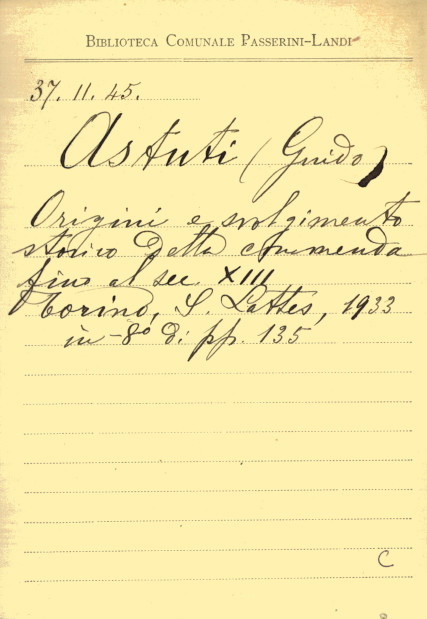 Biblioteca Comunale Passerini-Landi
37. 11. 45.
Astuti (Guido)
Origini e svolgimento
storico della commenda
fino al sec. XIII
Torino, S. Lattes, 1933
in-8° di pp. 135
C